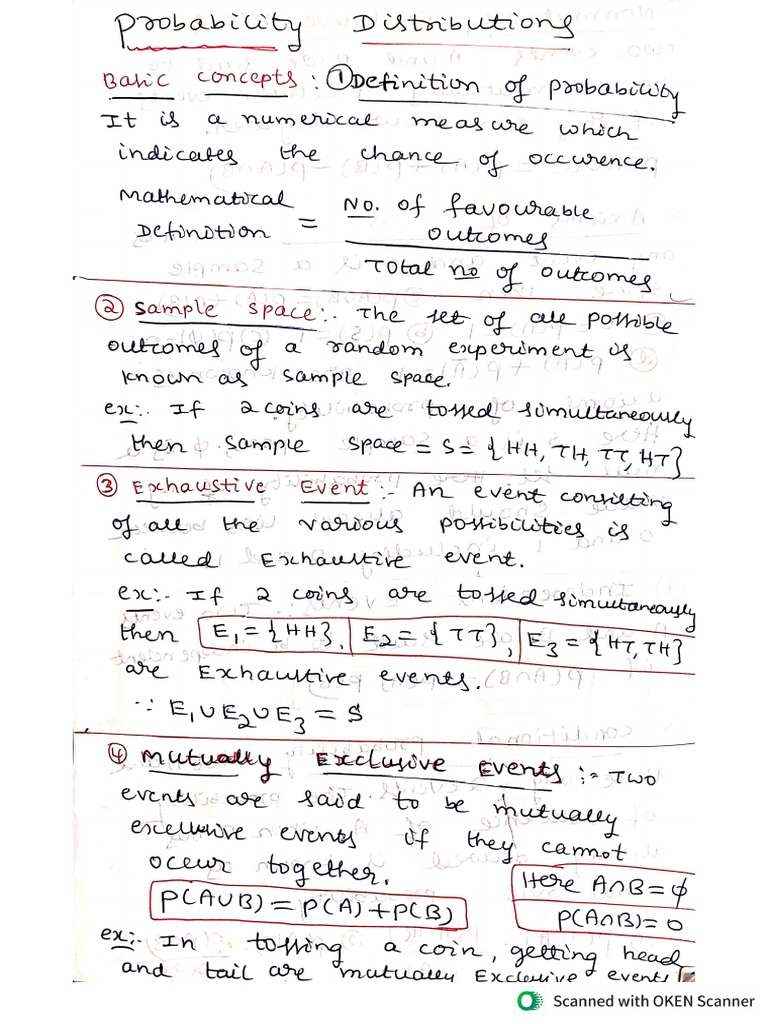 Probability Distributions
Basic concepts : ① Definition of probability
It is a numerical measure which
indicates the chance of occurence.
Mathematical Definition = No. of favourable outcomes / Total no of outcomes
② Sample space:- The set of all possible
outcomes of a random experiment is
known as sample space.
ex:- If 2 coins are tossed simultaneously
then sample space = S = {HH, TH, TT, HT}
③ Exhaustive Event :- An event consisting
of all the various possibilities is
called Exhaustive event.
ex:- If 2 coins are tossed simultaneously
then E₁ = {HH}, E₂ = {TT}, E₃ = {HT, TH}
are Exhaustive events.
∵ E₁∪E₂∪E₃ = S
④ Mutually Exclusive Events :- Two
events are said to be mutually
exclusive events if they cannot
occur together.
Here A∩B = ϕ
P(A∪B) = P(A) + P(B)
P(A∩B) = 0
ex:- In tossing a coin, getting head
and tail are mutually Exclusive events
Scanned with OKEN Scanner